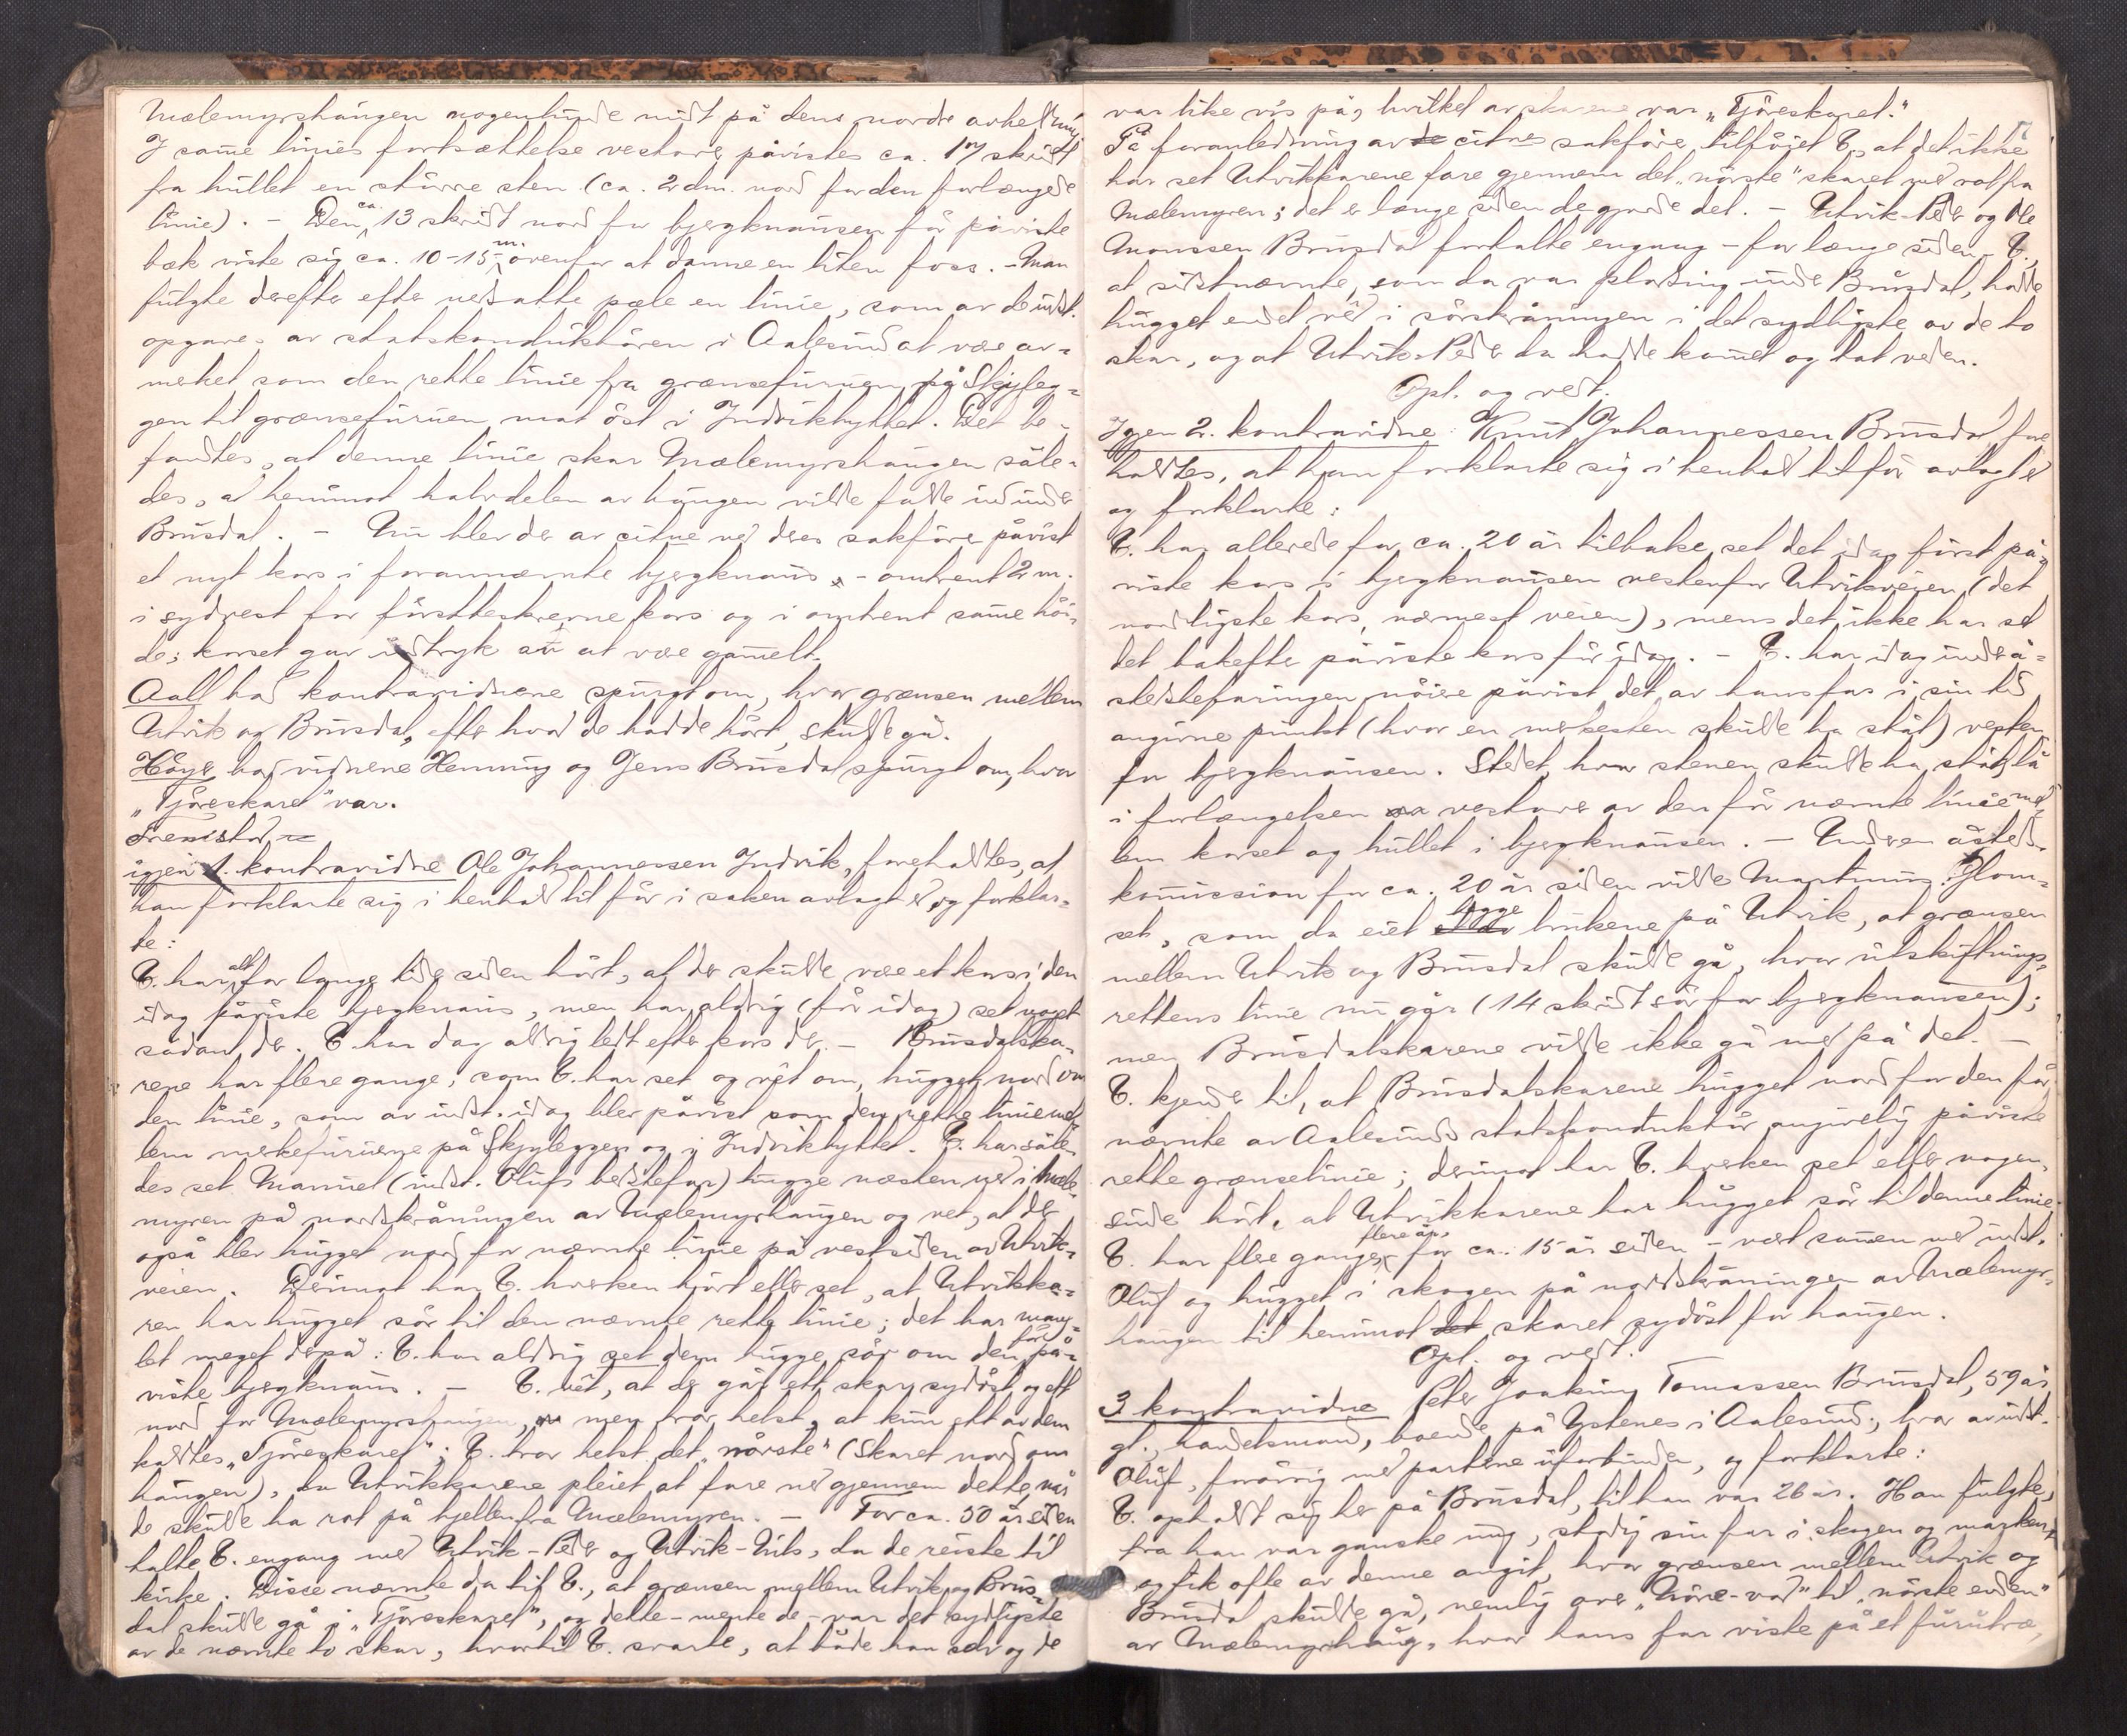 Mælemyrshaugen nogenlunde midt på dens nordre avheldning
I samme linies fortsættelse vestover påvistes ca. 17 skridt
fra hullet en større sten (ca. 2 dm. nord for den forlængede
linie). - Den ca. 13 skridt nord for bjergknausen før påviste
bæk viste sig ca. 10-15 m. ovenfor at danne en liten foss. - Man
fulgte derefter efter nedsatte pæle en linie, som av de indst.
opgaves av statskonduktøren i Aalesund at være av=
merket som den rette linie fra grænsefuruen på Skjyleg=
gen til grænsefuruen mot öst i Indviktyttet. Det be=
fandtes, at denne linie skar Mælemyrshaugen såle=
des, at henimot halvdelen av haugen vilde falde ind under
Brusdal. - Nu blev der av citne ved deres sakfører påvist
et nyt kors i forannævnte bjergknaus, - omtrent 2 m.
i sydvest for førstbeskrevne kors og i omtrent samme høi=
de; korset gav indtryk av at være gammelt.
Aall bad kontravidnene spurgt om, hvor grænsen mellem
Utvik og Brusdal, efter hvad de hadde hørt, skulde gå.
Høyer bad vidnene Henning og Jens Brusdal spurgt om, hvor
"Tjøreskaret" var.
Fremstod
igjen 1. kontravidne Ole Johannessen Indvik, foreholdtes, at
han forklarte sig i henhold til før i saken avlagt ed og forklar=
te:
V. har alt for lange tider siden hört, at der skulde være et kors i den
idag påviste bjergknaus, men har aldrig (før idag) set noget
sådant der. V. har dog aldrig lett efter kors der. - Brusdalska=
rene har flere gange, som V. har set og vet om, hugget nord om
den linie, som av indst. idag blev påvist som den rette linie mel=
lem merkefuruene på Skjyleggen og i Indviktyttet. V. har såle=
des set Manuel (indst. Olufs bedstefar) hugge næsten ned i Mæle=
myren på nordskråningen av Mælemyrhaugen og vet, at der
også blev hugget nord for nævnte linie på vestsiden av Utvik=
veien. Derimot har V. hverken hört eller set, at Utvikka=
ren har hugget sör til den nævnte rette linie; det har mang=
let meget derpå: V. har aldrig set dem hugge sör om den før på=
viste bjergknaus. - V. vet, at der går ett skar sydöst og ett
nord for Mælemyrshaugen, men tror helst, at kun ett av dem
kaldtes "Tjøreskaret"; V. tror helst det "nörste" (skaret nord om
haugen), da Utvikkarene pleiet at fare ned gjennem dette, når
de skulde ha rot på hjellen fra Mælemyren. - For ca. 50 år siden
talte V. engang med Utvik-Peder og Utvik-Nils, da de reiste til
kirke. Disse nævnte da til V., at grænsen mellem Utvik og Brus=
dal skulde gå i "Tjøreskaret", og dette - mente de - var det sydligste
av de nævnte to skar, hvortil V. svarte, at både han selv og de
var like vis på, hvilket av skarene var "Tjøreskaret."
17
På foranledning av citnes sakfører tilføiet V., at det ikke
har set Utvikkarene fare gjennem det "nörste" skaret med rot fra
Mælemyren; det er længe siden de gjorde det. - Utvik-Peder og Ole
Monssen Brusdal fortalte engang - for længe siden - V.,
at sidstnævnte, som da var pladsing under Brusdal, hadde
hugget endel ved i sörskråningen i det sydligste av de to
skar, og at Utvik-Peder da hadde kommet og tat veden.
Opl. og vedt.
Igjen 2. kontravidne: Knut Johannessen Brusdal, fore=
holdtes, at han forklarte sig i henhold til før avlagt ed
og forklarte:
V. har allerede for ca. 20 år tilbake set det idag først på=
viste kors i bjergknausen vestenfor Utvikveien (det
nordligste kors, nærmest veien), mens det ikke har set
det bakefter påviste kors før idag. - V. har idag under å=
stedsbefaringen nöiere påvist det av hans far i sin tid
angivne punkt (hvor en merkesten skulde ha ståt) vesten
for bjergknausen. Stedet, hvor stenen skulde ha ståt, lå
i forlængelsen vestover av den før nævnte linie mel=
lem korset og hullet i bjergknausen. - Under en åsteds=
kommission for ca. 20 år siden vilde Martinus Glom=
set, som da eiet begge brukene på Utvik, at grænsen
mellem Utvik og Brusdal skulde gå, hvor utskiftnings=
rettens linie nu går (14 skridt sör for bjergknausen);
men Brusdalskarene vilde ikke gå med på det. -
V. kjender til, at Brusdalskarene hugget nord for den før
nævnte av Aalesunds statskonduktör angivelig påviste
rette grænselinie; derimot har V. hverken set eller nogen=
sinde hört, at Utvikkarene har hugget sör til denne linie.
V. har flere ganger flere år, for ca. 15 år siden - vært sammen med indst.
Oluf og hugget i skogen på nordskråningen av Mælemyr=
haugen til henimot skaret sydöst for haugen.
Opl. og vedt.
3 kontravidne Peter Joakim Tomassen Brusdal, 59 år
gl., handelsmand, boende på Ystenes i Aalesund, bror av indst.
Oluf, forøvrig med partene uforbunden, og forklarte:
V. opholdt sig her på Brusdal, til han var 26 år. Han fulgte,
fra han var ganske ung, stadig sin far i skogen og marken
og fik ofte av denne angit, hvor grænsen mellem Utvik og
Brusdal skulde gå, nemlig over til "nörste enden"
av Mælemyrhaug, hvor hans far viste på et furutræ,